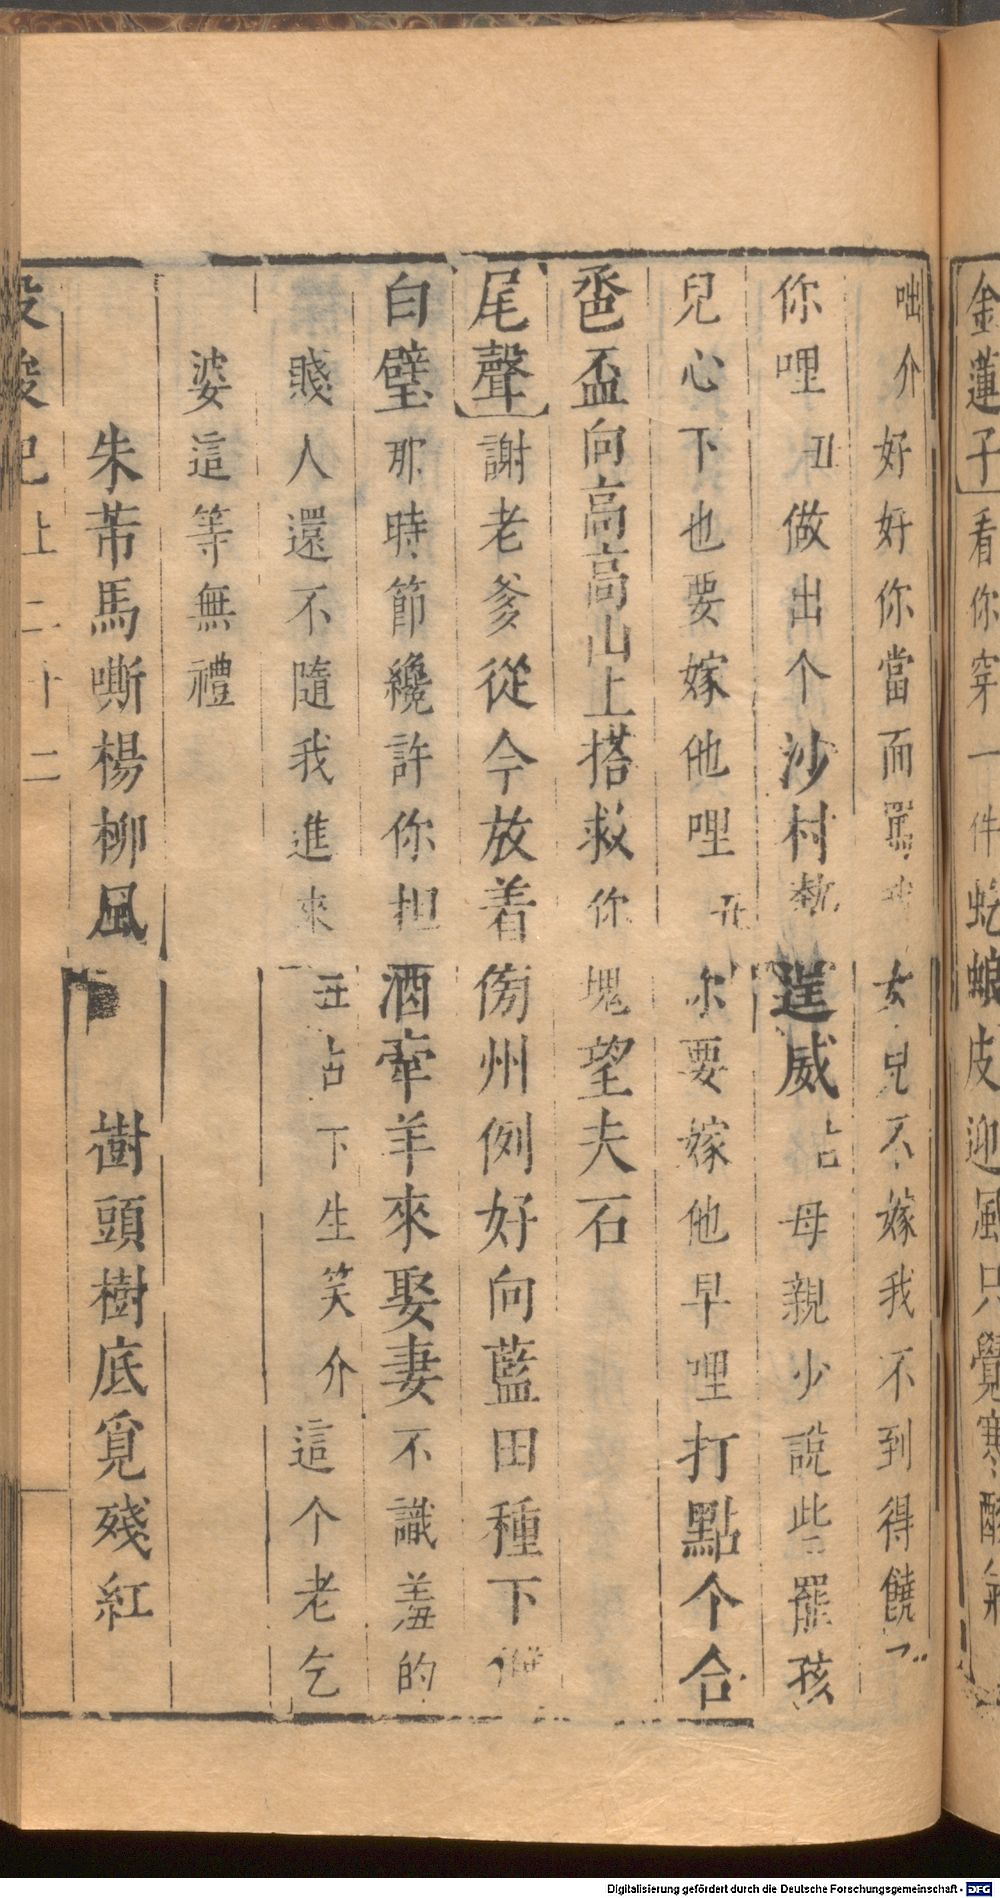 金蓮子看你穿一件蛇蜋皮迎風只覺寒酸氣
咄介好好你當面罵女兒不嫁我不到得饒
你哩丑做出个沙村勢逞威占母親少說些罷孩
兒心下也要嫁他哩丑尔要嫁他早哩打點个合
卺盃向高高山上搭救你塊望夫石
尾聲謝老爹從今放着傍州例好向藍田種下
白璧那時節纔許你担酒牽羊來娶妻不識羞的
賤人還不隨我進來丑占下生笑介這个老乞
婆這等無禮
朱芾馬嘶楊柳風樹頭樹底覓殘紅
投梭記上二十二
Digitalisierung gefördert durch die Deutsche Forschungsgemeinschaft - DFG